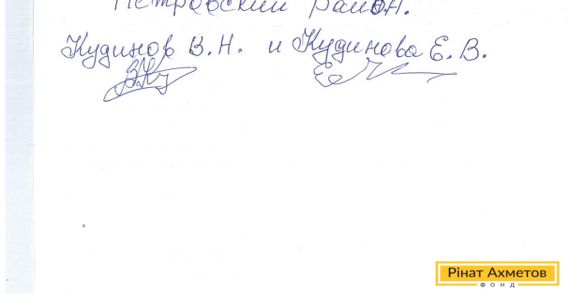 Петровский район.
Кудинов В.Н. и Кудинова Е.В.
Рінат Ахметов
ФОНД